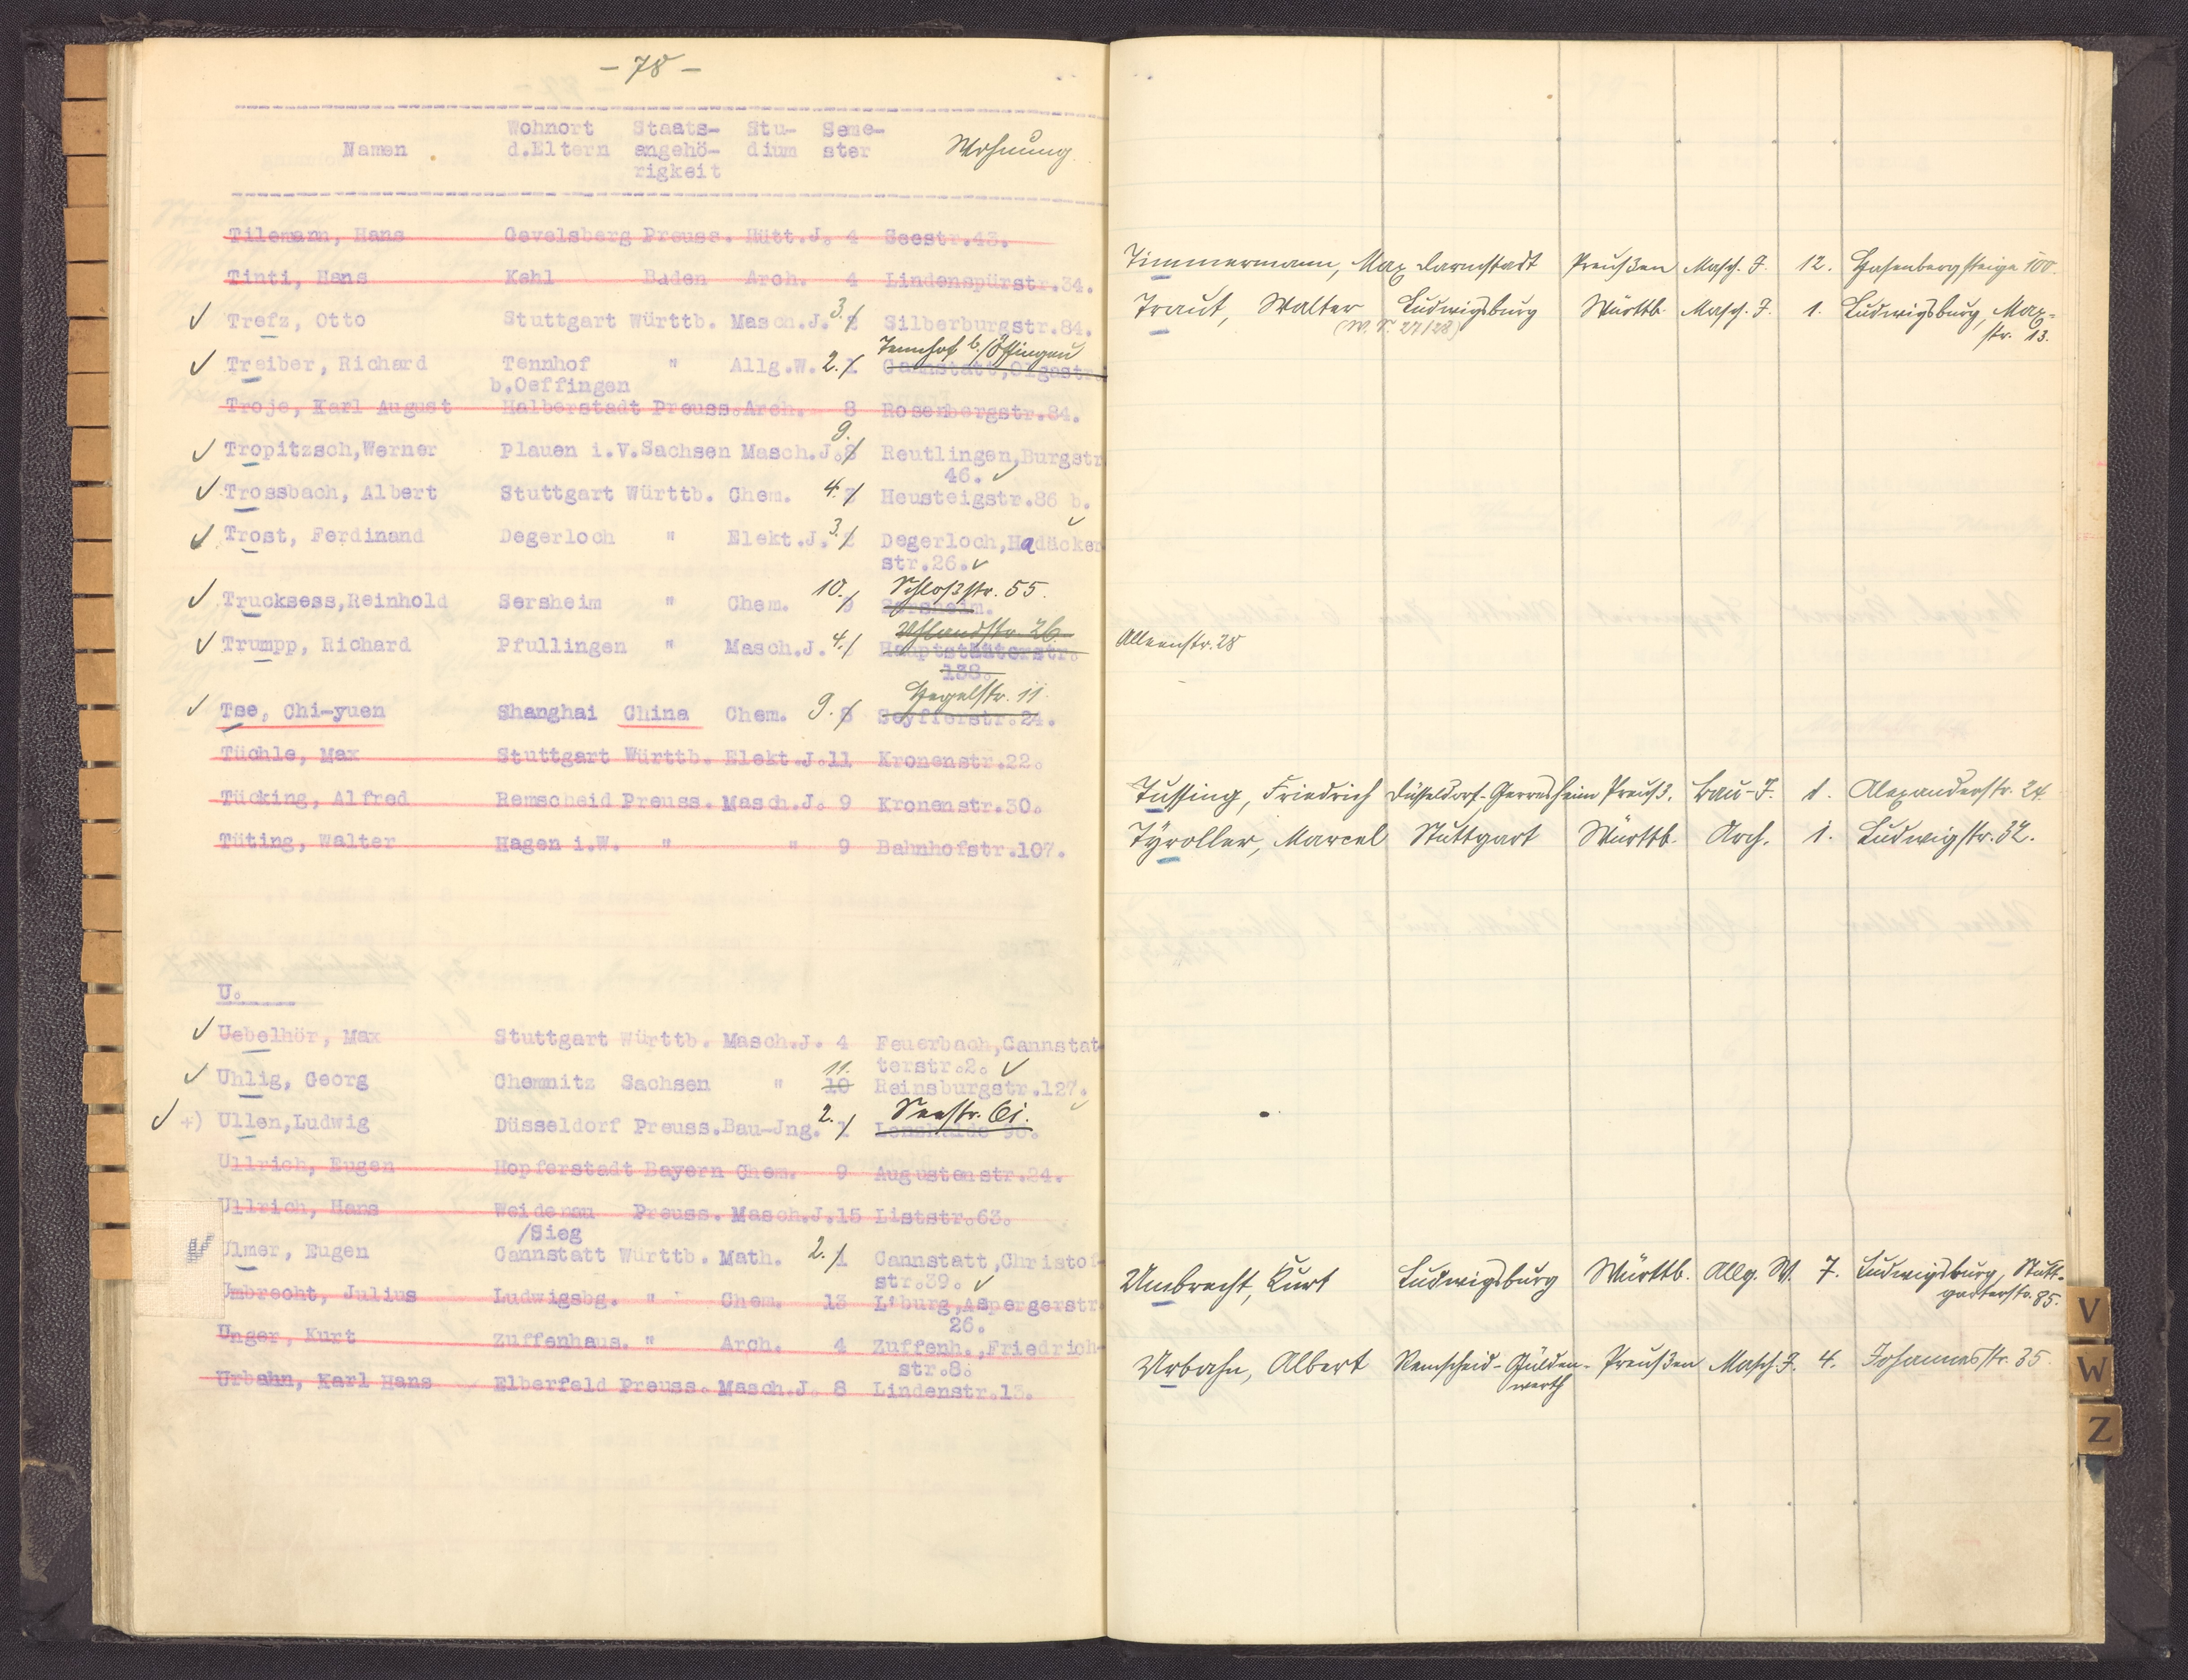 - 78 -
Namen Wohnort d.Eltern Staats-angehö-rigkeit Stu-dium Seme-ster Wohnung.
Tilemann, Hans Gevelsberg Preuss. Hütt.J. 4 Seestr.43.
Tinti, Hans Kehl Baden Arch. 4 Lindenspürstr.34.
Trefz, Otto Stuttgart Württb. Masch.J. 3. 2 Silberburgstr.84.
Tennhof b./Öffingen
Treiber, Richard Tennhof " Allg.W. 2. 1 Cannstatt,Olgastr.
b.Oeffingen
Troje, Karl August Halberstadt Preuss.Arch. 8 Rosenbergstr.84.
Tropitzsch,Werner Plauen i.V.Sachsen Masch.J. 9. 8 Reutlingen,Burgstr
46.
Trossbach, Albert Stuttgart Württb. Chem. 4. 3 Heusteigstr.86 b.
Trost, Ferdinand Degerloch " Elekt.J. 3. 2 Degerloch,Hadäcker
str.26.
Schloßstr. 55.
Trucksess,Reinhold Sersheim " Chem. 10. 9 Sersheim.
Uhlandstr. 26.
Trumpp, Richard Pfullingen " Masch.J. 4. Hauptstätterstr.
138.
Hegelstr. 11.
Tse, Chi-yuen Shanghai China Chem. 9. 8 Seyfferstr.24.
Tüchle, Max Stuttgart Württb. Elekt.J.11 Kronenstr.22.
Tücking, Alfred Remscheid Preuss. Masch.J. 9 Kronenstr.30.
Tüting, Walter Hagen i.W. " " 9 Bahnhofstr.107.
U.
Uebelhör, Max Stuttgart Württb. Masch.J. 4 Feuerbach,Cannstat-
terstr.2.
Uhlig, Georg Chemnitz Sachsen " 11. 10 Reinsburgstr.127.
Seestr. 61.
+) Ullen,Ludwig Düsseldorf Preuss.Bau-Jng. 2. 1 Lenzhalde 96.
Ullrich, Eugen Hopferstadt Bayern Chem. 9 Augustenstr.24.
Ullrich, Hans Weidenau Preuss. Masch.J.15 Liststr.63.
/Sieg
Ulmer, Eugen Cannstatt Württb. Math. 2. 1 Cannstatt,Christof-
str.39.
Umbrecht, Julius Ludwigsbg. " Chem. 13 L'burg,Aspergerstr.
26.
Unger, Kurt Zuffenhaus. " Arch. 4 Zuffenh.,Friedrich-
str.8.
Urbahn, Karl Hans Elberfeld Preuss. Masch.J. 8 Lindenstr.13.
Timmermann, Max Darmstadt Preußen Masch. J. 12. Hasenbergsteige 100.
Traut, Walter Ludwigsburg Württb. Masch. J. 1. Ludwigsburg, Max-
(W. S. 27/28) str. 13.
Alleenstr. 28
Tussing, Friedrich Düsseldorf-Gerresheim Preuß. Bau-J. 1. Alexanderstr. 24.
Tyroller, Marcel Stuttgart Württb. Arch. 1. Ludwigstr. 32.
Umbrecht, Kurt Ludwigsburg Württb. Allg. W. 7. Ludwigsburg, Stutt-
garterstr. 85.
Urbahn, Albert Remscheid-Gülden- Preußen Masch. J. 4. Johannesstr. 35.
werth
V
W
Z